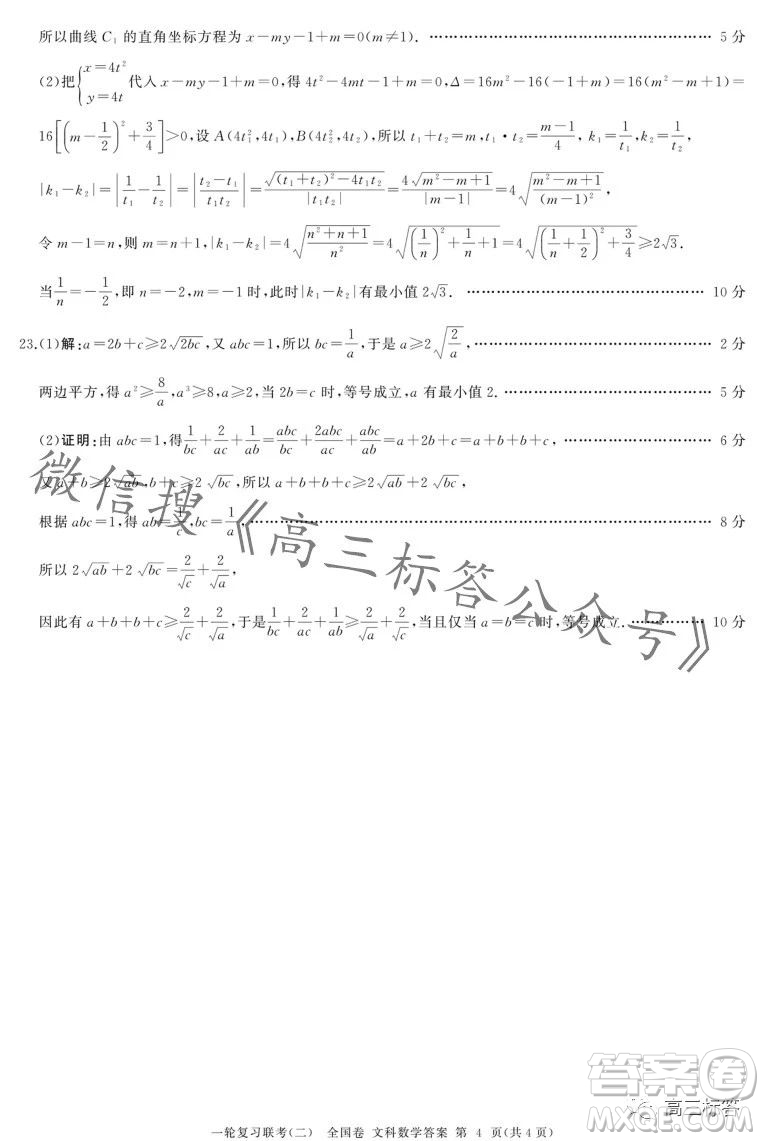 所以曲线 C₁ 的直角坐标方程为 x-my-1+m=0(m≠1). …………………………………………… 5 分
(2)把{x=4t² y=4t 代入 x-my-1+m=0,得 4t²-4mt-1+m=0,Δ=16m²-16(-1+m)=16(m²-m+1)=
16[(m-1/2)²+3/4]>0,设 A(4t₁²,4t₁),B(4t₂²,4t₂),所以 t₁+t₂=m,t₁·t₂=(m-1)/4, k₁=1/t₁,k₂=1/t₂,
|k₁-k₂|=|1/t₁-1/t₂|=|(t₂-t₁)/(t₁t₂)|=√((t₁+t₂)²-4t₁t₂)/|t₁t₂|=4√(m²-m+1)/|m-1|=4√((m²-m+1)/(m-1)²),
令 m-1=n,则 m=n+1,|k₁-k₂|=4√((n²+n+1)/n²)=4√((1/n)²+1/n+1)=4√((1/n+1/2)²+3/4)≥2√3.
当1/n=-1/2,即 n=-2,m=-1时,此时|k₁-k₂|有最小值 2√3. …………………………………… 10 分
23.(1)解:a=2b+c≥2√(2bc),又 abc=1,所以 bc=1/a,于是 a≥2√(2/a), …………………………………… 2 分
两边平方,得 a²≥8/a,a³≥8,a≥2,当 2b=c 时,等号成立,a 有最小值 2. …………………………………… 5 分
(2)证明:由 abc=1,得1/bc+2/ac+1/ab=abc/bc+2abc/ac+abc/ab=a+2b+c=a+b+b+c, …………………………… 6 分
又 a+b≥2√(ab),b+c≥2√(bc),所以 a+b+b+c≥2√(ab)+2√(bc),
根据 abc=1,得 ab=1/c,bc=1/a, …………………………………………… 8 分
所以 2√(ab)+2√(bc)=2/√c+2/√a,
因此有 a+b+b+c≥2/√c+2/√a,于是1/bc+2/ac+1/ab≥2/√a+2/√c,当且仅当 a=b=c时,等号成立. ……………… 10 分
微信搜《高三标答公众号》
答案圈
高三标答
一轮复习联考(二) 全国卷 文科数学答案 第 4 页(共 4 页)